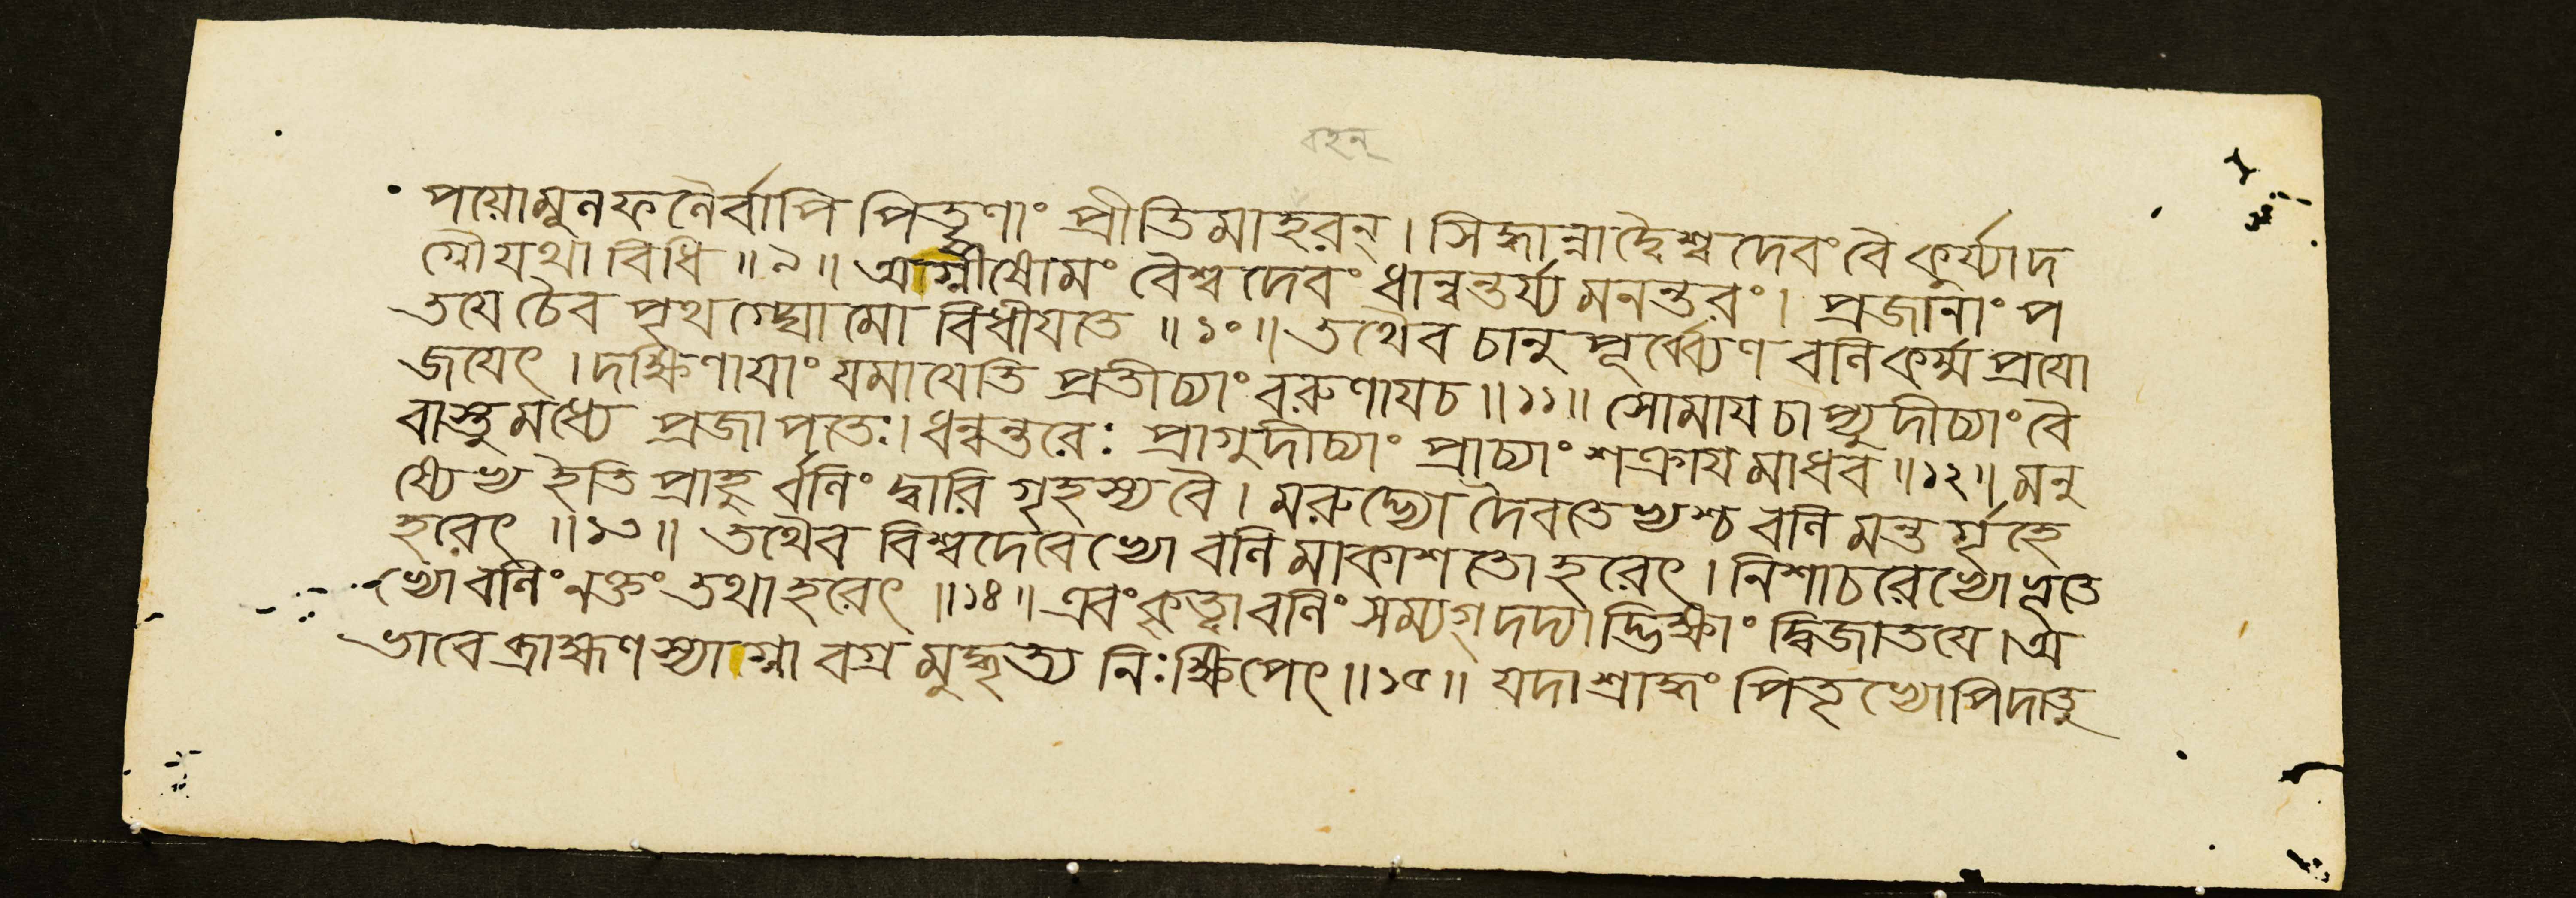 বহন্
পয়োমুলফলৈর্বাপি পিতৄণাং প্রীতিমাহরন্। সিদ্ধান্নাদ্বৈশ্বদেবং বৈ কুর্য্যাদ
গ্নৌযথা বিধি॥৯॥ আগ্নীষোমং বৈশ্বদেবং ধান্বন্তর্য্যমনন্তরং। প্রজানাং প
তযে চৈব পৃথগ্ঘোমো বিধীযতে॥১০॥ তথৈব চানুপূর্ব্ব্যেণ বলিকর্ম্ম প্রযো
জযেৎ। দক্ষিণাযাং যমাযেতি প্রতীচ্যাং বরুণাযচ॥১১॥ সোমায চাপ্যুদীচ্যাং বৈ
বাস্তুমধ্যে প্রজাপতেঃ। ধন্বন্তরেঃ প্রাগুদীচ্যাং প্রাচ্যাং শক্রায মাধব॥১২॥ মনু
ষ্যেভ্য ইতি প্রাহু র্বলিং দ্বারি গৃহস্য বৈ। মরুদ্ভ্যো দৈবতেভ্যশ্চ বলিমন্তর্গৃহে
হরেৎ॥১৩॥ তথৈব বিশ্বদেবেভ্যো বলিমাকাশতো হরেৎ। নিশাচরেভ্যো ভূতে
ভ্যো বলিং নক্তং তথাহরেৎ॥১৪॥ এবং কৃত্বা বলিং সম্যগ্ দদ্যাদ্ভিক্ষাং দ্বিজাতযে। অ
ভাবে ব্রাহ্মণস্যাগ্না বগ্রমুদ্ধৃত্য নিঃক্ষিপেৎ॥১৫॥ যদা শ্রাদ্ধং পিতৃভ্যোপি দাতু